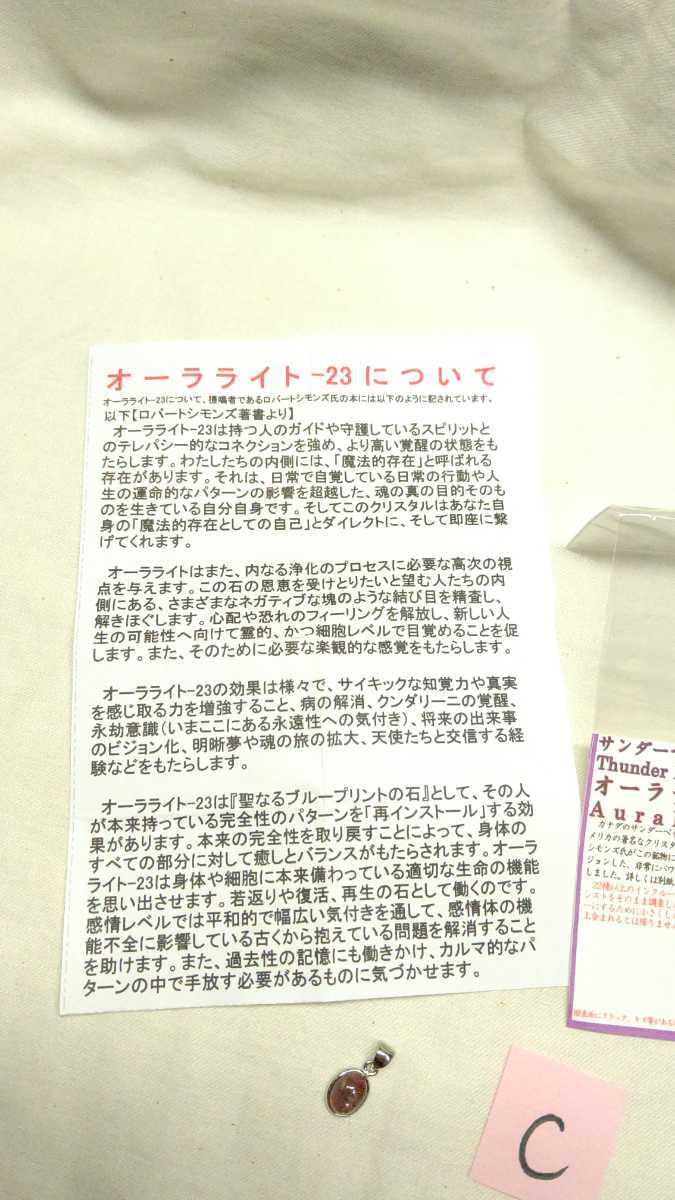 オーラライト-23について
オーラライト-23について、提唱者であるロバートシモンズ氏の本には以下のように記されています。
以下【ロバートシモンズ著書より】
オーラライト-23は持つ人のガイドや守護しているスピリットと
のテレパシー的なコネクションを強め、より高い覚醒の状態をも
たらします。わたしたちの内側には、「魔法的存在」と呼ばれる
存在があります。それは、日常で自覚している日常の行動や人
生の運命的なパターンの影響を超越した、魂の真の目的そのも
のを生きている自分自身です。そしてこのクリスタルはあなた自
身の「魔法的存在としての自己」とダイレクトに、そして即座に繋
げてくれます。
オーラライトはまた、内なる浄化のプロセスに必要な高次の視
点を与えます。この石の恩恵を受けとりたいと望む人たちの内
側にある、さまざまなネガティブな塊のような結び目を精査し、
解きほぐします。心配や恐れのフィーリングを解放し、新しい人
生の可能性へ向けて霊的、かつ細胞レベルで目覚めることを促
します。また、そのために必要な楽観的な感覚をもたらします。
オーラライト-23の効果は様々で、サイキックな知覚力や真実
を感じ取る力を増強すること、病の解消、クンダリーニの覚醒、
永劫意識(いまここにある永遠性への気付き)、将来の出来事
のビジョン化、明晰夢や魂の旅の拡大、天使たちと交信する経
験などをもたらします。
オーラライト-23は『聖なるブループリントの石』として、その人
が本来持っている完全性のパターンを「再インストール」する効
果があります。本来の完全性を取り戻すことによって、身体の
すべての部分に対して癒しとバランスがもたらされます。オーラ
ライト-23は身体や細胞に本来備わっている適切な生命の機能
を思い出させます。若返りや復活、再生の石として働くのです。
感情レベルでは平和的で幅広い気付きを通して、感情体の機
能不全に影響している古くから抱えている問題を解消すること
を助けます。また、過去性の記憶にも働きかけ、カルマ的なパ
ターンの中で手放す必要があるものに気づかせます。
サンダーベ
Thunder
オーラ
Aura
カナダのサンダーベイ
メリカの著名なクリスタ
シモンズ氏がこの鉱物に
ジョンした、非常にパワ
しました。詳しくは別紙
22種以上のインクルー
ンストをそのまま調査し
ーにするために小さくし
上含まれるとは限りませ
C